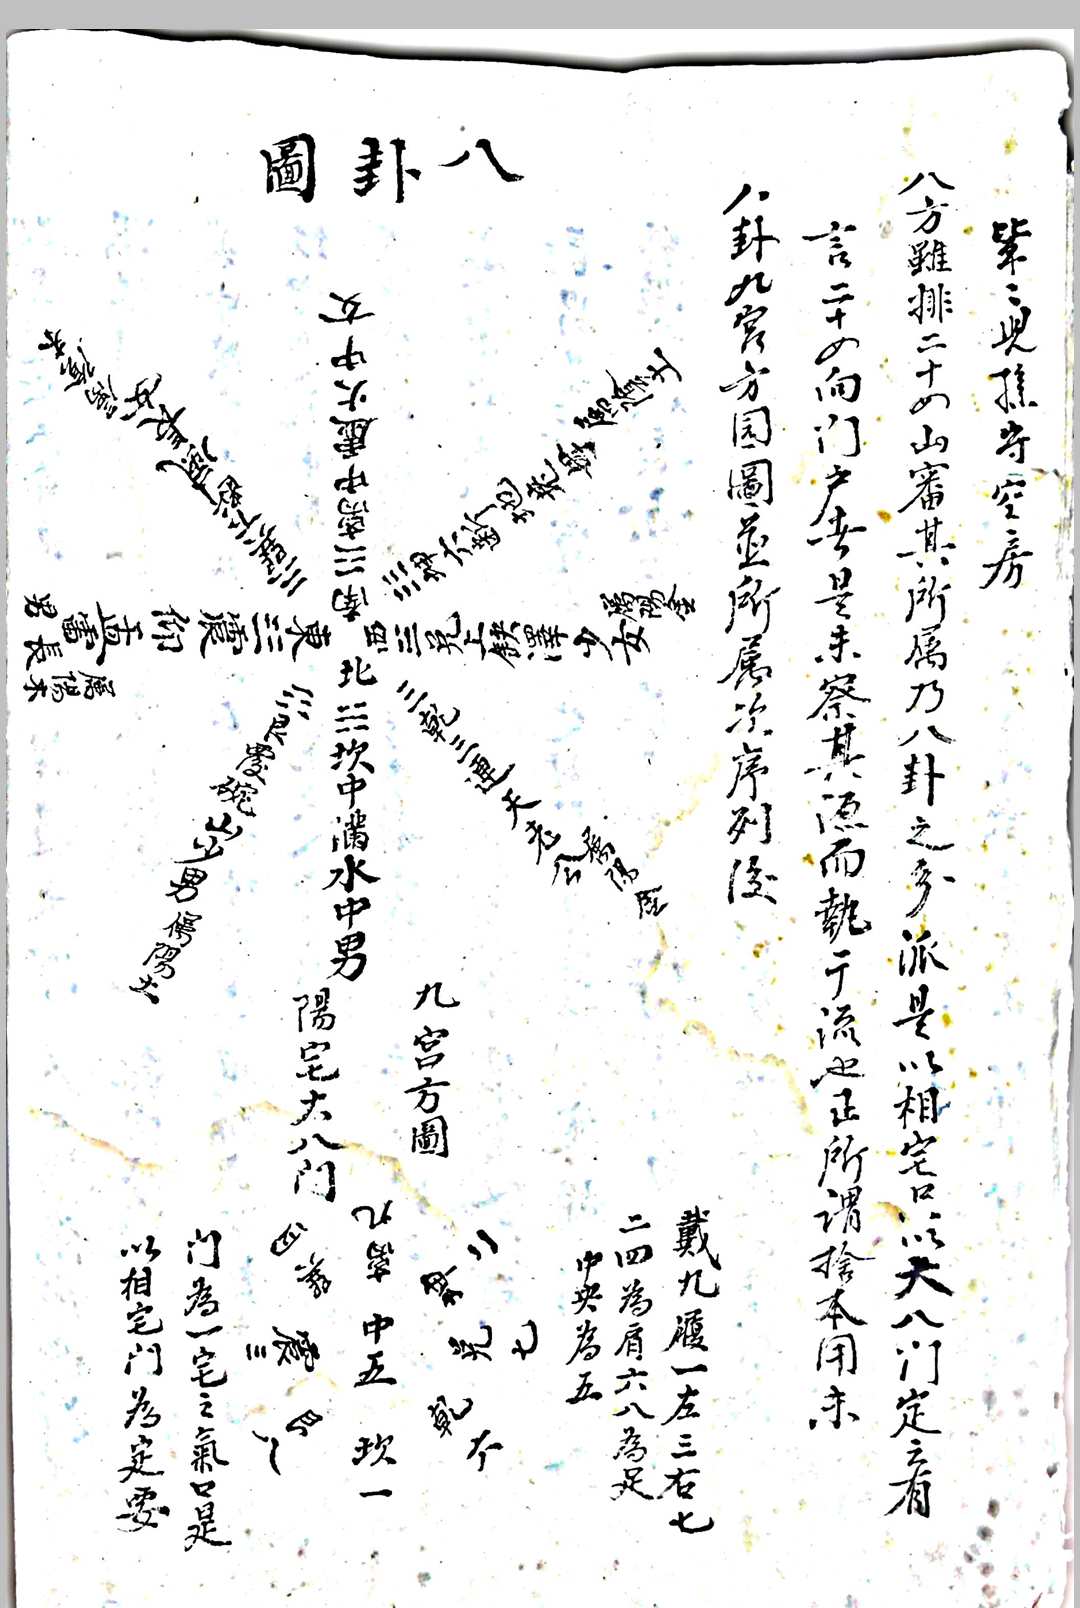 輩輩現孤守空房
八方雖排二十四山審其所屬乃八卦之分派是以相宅只以大八門定之有
言二十四向门户者是未察其源而執于流也正所谓捨本用末
八卦九宮方图圖並所属次序列後
八卦圖
南 ☲ 离中虛火中女
☷ 坤六斷地
西 ☱ 兑上缺澤少女 屬陰金
☰ 乾三連天老 屬陽
北 ☵ 坎中滿水中男
☶ 艮覆碗山少男 屬陽土
東 ☳ 震仰盂雷長男 屬陽木
☴ 巽下斷風長女
九宮方圖
戴九履一左三右七
二四為肩六八為足
中央為五
二坤
七兑
乾六
九离
中五
坎一
四巽
震三
艮八
陽宅大八门
门為一宅之氣口是
以相宅门為定要